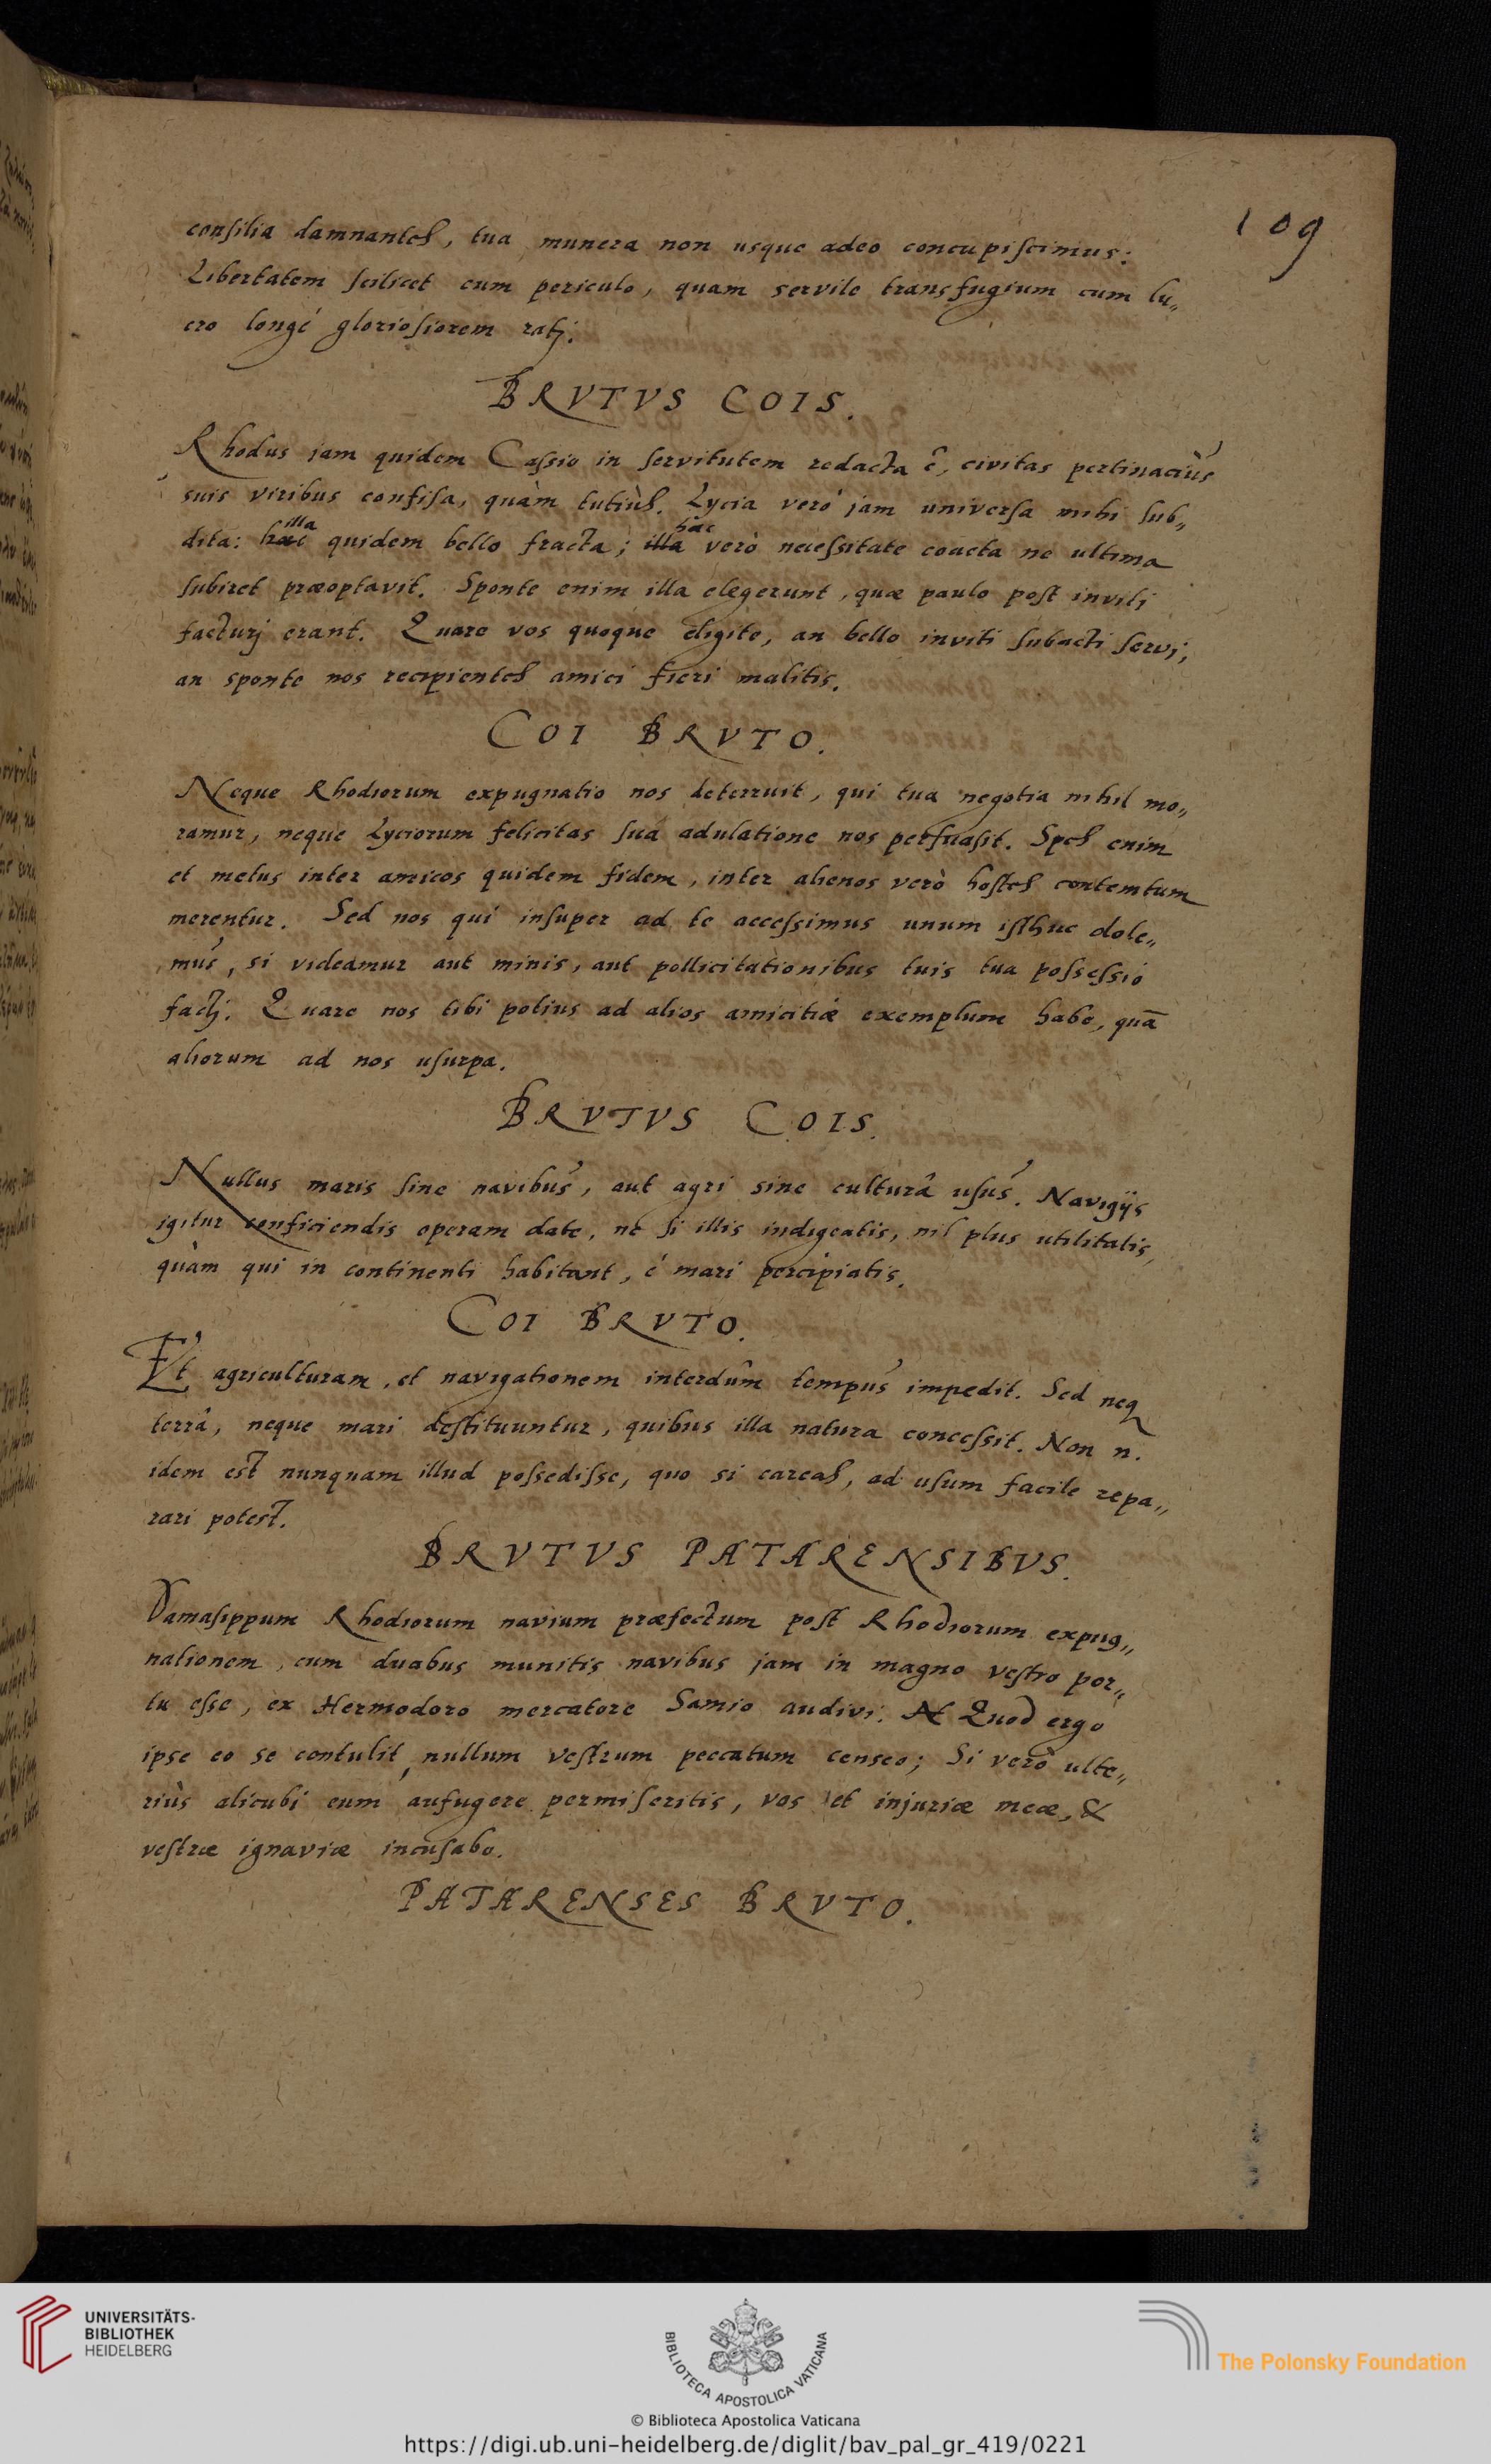 109
consilia damnantes, tua munera non usque adeo concupiscimus:
Libertatem scilicet cum periculo, quam servile transfugium cum lu„
cro longé gloriosiorem ratj.
BRVTVS COIS.
Rhodus jam quidem Cassio in servitutem redacta ê, civitas pertinaciùs
suis viribus confisa, quàm tutiùs. Lycia veró jam universa mihi sub„
dita: illa quidem bello fracta; hæc verò necessitate coacta ne ultima
subiret præoptavit. Sponte enim illa elegerunt, quæ paulo post inviti
facturj erant. Quare vos quoque eligite, an bello inviti subacti servj,
an sponte nos recipientes amici fieri malitis.
COI BRVTO.
Neque Rhodiorum expugnatio nos deterruit, qui tua negotia nihil mo„
ramur, neque Lyciorum felicitas suâ adulatione nos persuasit. Spes enim
et metus inter amicos quidem fidem, inter alienos verò hostes contemtum
merentur. Sed nos qui insuper ad te accessimus unum isthuc dole„
mus, si videamur aut minis, aut pollicitationibus tuis tua possessio
factj. Quare nos tibi potius ad alios amicitiæ exemplum habe, quā
aliorum ad nos usurpa.
BRVTVS COIS.
Nullus maris sine navibus, aut agri sine culturâ usus. Navigijs
igitur conficiendis operam date, ne si illis indigeatis, nil plus utilitatis,
quàm qui in continenti habitant, é mari percipiatis.
COI BRVTO.
Et agriculturam, et navigationem interdûm tempus impedit. Sed neq
terrâ, neque mari destituuntur, quibus illa natura concessit. Non n.
idem est nunquam illud possedisse, quo si careas, ad usum facile repa„
rari potest.
BRVTVS PATARENSIBVS.
Damasippum Rhodiorum navium præfectum post Rhodiorum expug„
nationem, cum duabus munitis navibus jam in magno vestro por„
tu esse, ex Hermodoro mercatore Samio audivi. Quod ergo
ipse eo se contulit, nullum vestrum peccatum censeo; Si verò ulte„
riùs alicubi eum aufugere permiseritis, vos et injuriæ meæ, &
vestræ ignaviæ incusabo.
PATARENSES BRVTO.
UNIVERSITÄTS-
BIBLIOTHEK
HEIDELBERG
BIBLIOTECA APOSTOLICA VATICANA
The Polonsky Foundation
© Biblioteca Apostolica Vaticana
https://digi.ub.uni-heidelberg.de/diglit/bav_pal_gr_419/0221